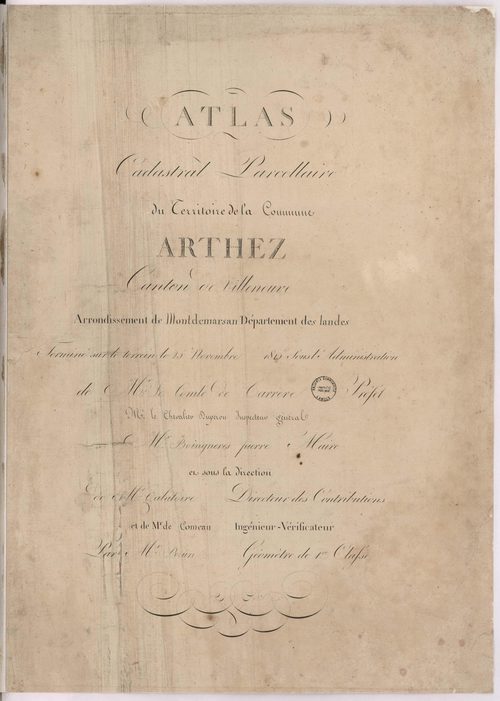 ATLAS
Cadastral Parcellaire
du Territoire de la Commune
ARTHEZ
Canton de Villeneuve
Arrondissement de Montdemarsan Département des landes
Terminé sur le terrain le 25 Novembre Sous l'Administration
de Mr. le Comte de Carrere Préfet
Mr le Chevalier Inspecteur général
Mr. pierre Maire
et sous la direction
de Mr. Directeur des Contributions
et de Mr. de Comeau Ingénieur-Vérificateur
Par Mr. Géomètre de 1re. Classe